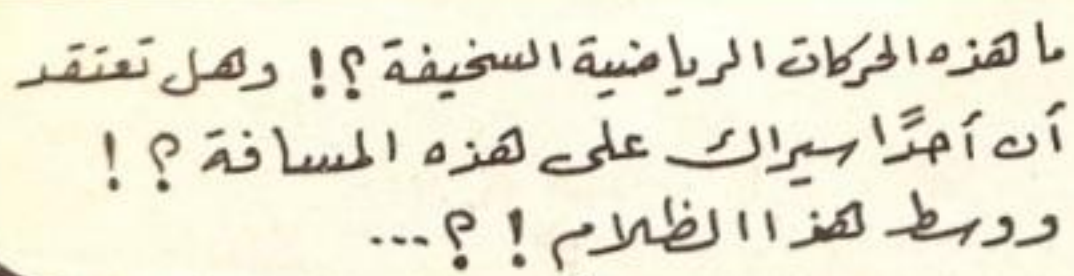 ما هذه الحركات الرياضية السخيفة ؟! وهل تعتقد
أن أحدًا سيراك على هذه المسافة ؟!
ووسط هذا الظلام !؟...